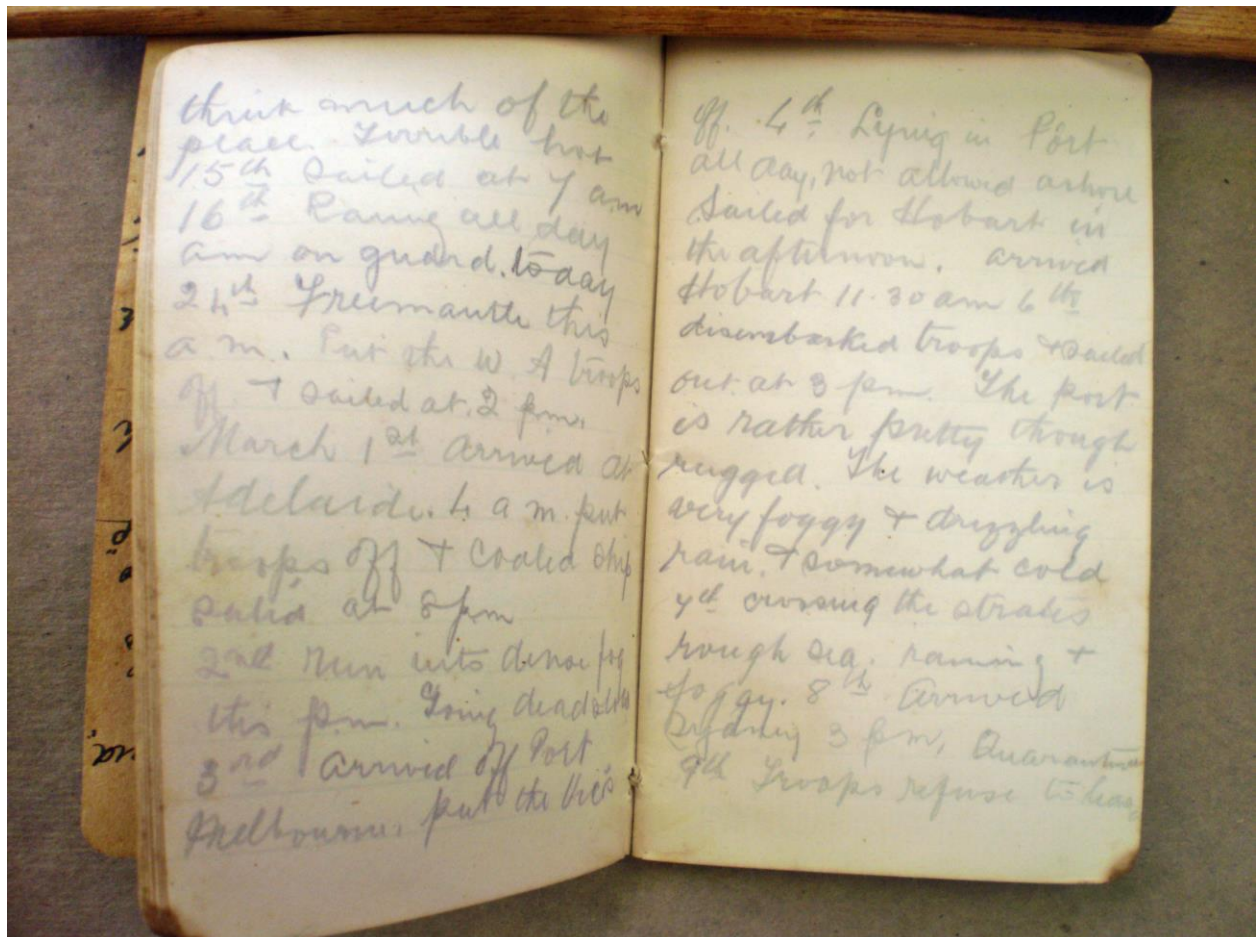 think much of the
place. Terrible hot
15th Sailed at 7 am
16th Raning all day
am on guard. today
24th Freemantle this
a m. Put the W. A troops
off. + sailed at 2 pm.
March 1st arrived at
Adelaide. 4 a m. put
troops off + coaled ship
sailed at 8 pm
2nd Run into dense fog
this pm. Going dead slow
3rd Arrived off Port
Melbourne. put the Vic's
off. 4th Lying in Port
all day, not allowed ashore
Sailed for Hobart in
the afternoon. arrived
Hobart 11.30 am 6th
disembarked troops + sailed
out at 3 pm. The port
is rather pretty though
rugged. The weather is
very foggy + drizzling
rain. + somewhat cold
7th crossing the straits
rough sea. raining +
foggy. 8th Arrived
Sydney 3 pm. Quarantine
9th Troops refuse to leave